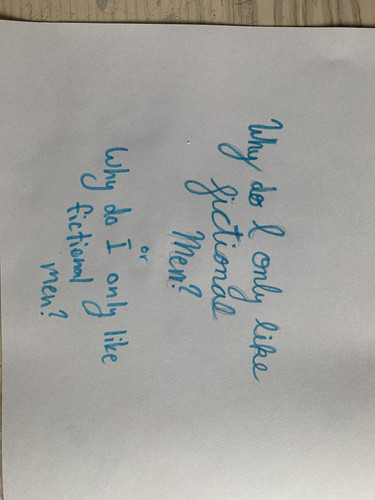 Why do I only like
fictional
Men?
or
Why do I only like
fictional
men?